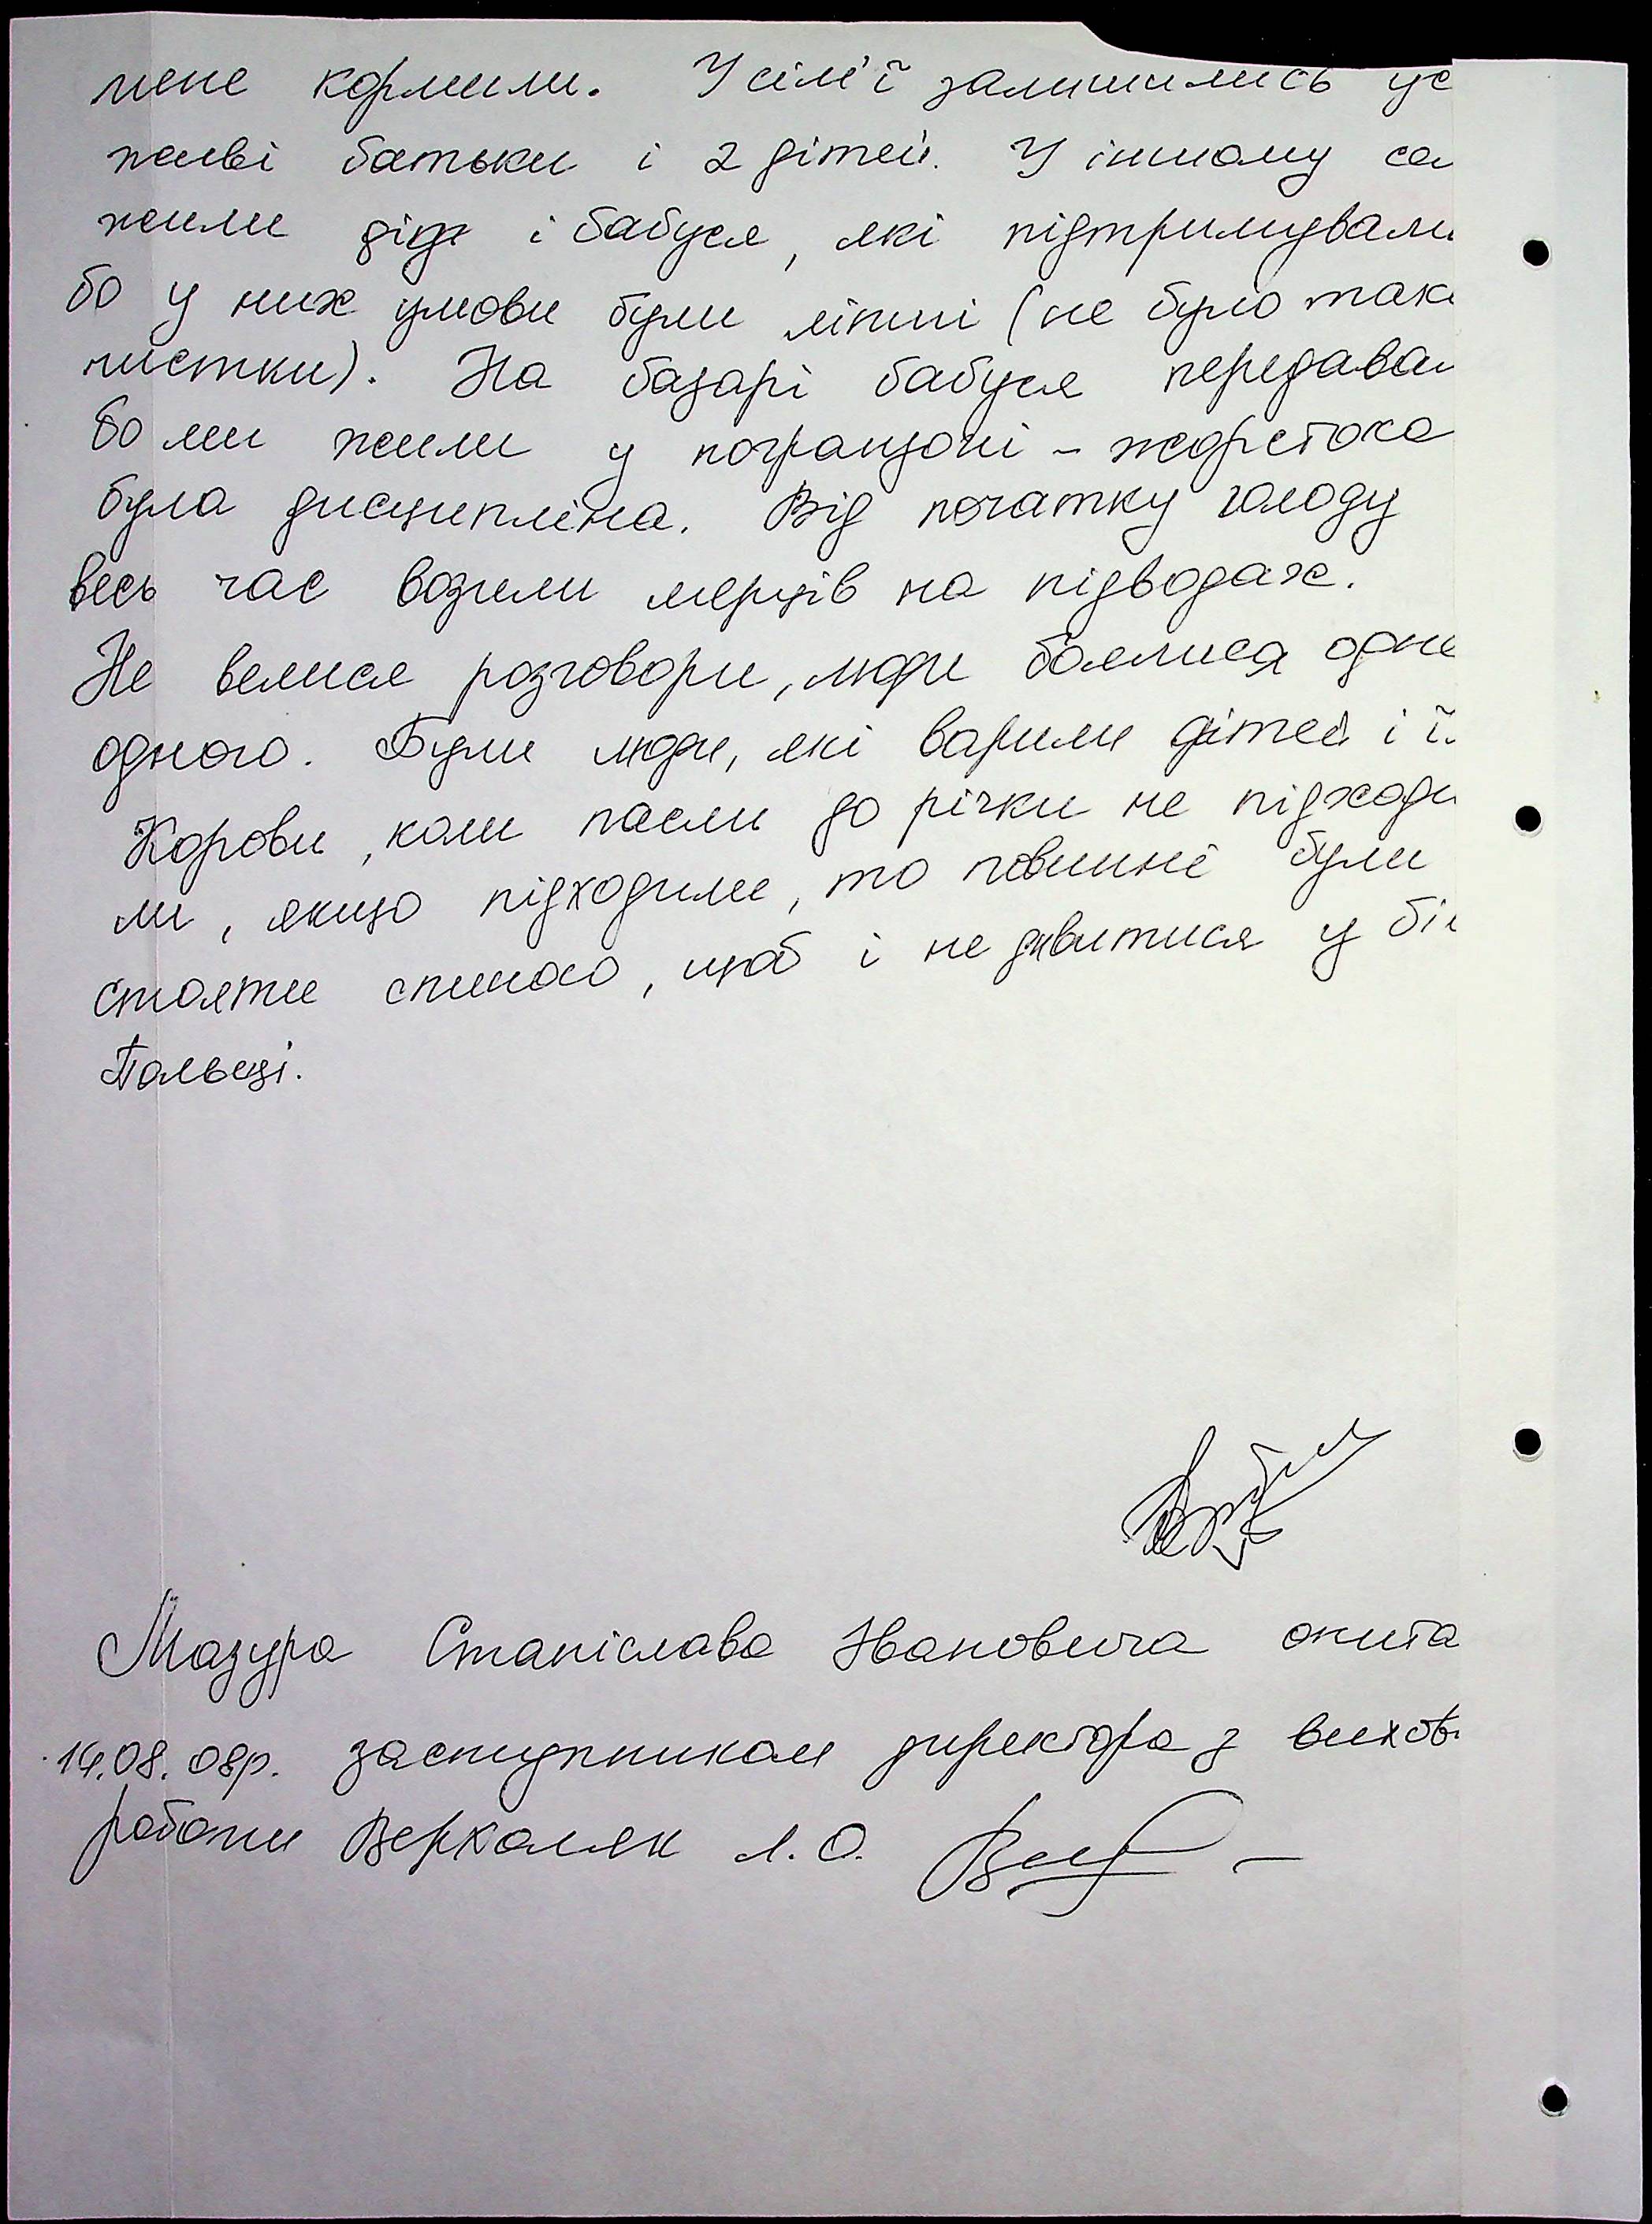 мене кормили. У сім'ї залишились ус
живі батьки і 2 дітей. У іншому се
жили дід і бабуся, які підтримували
бо у них умови були ліпші (не було таке
чистки). На базарі бабуся передава
бо ми жили у погранзоні - жорстока
була дисципліна. Від початку голоду
весь час возили мерців на підводах.
Не велися розговори, люди боялися одне
одного. Були люди, які варили дітей і ї
Корови, коли пасли до річки не підходи
ли, якщо підходили, то повинні були
стояти спиною, щоб і не дивитися у бік
Польщі.
Мазура Станіслава Івановича опита
14.08.08р. заступником директора з вихов
роботи Верхоляк Л.О.